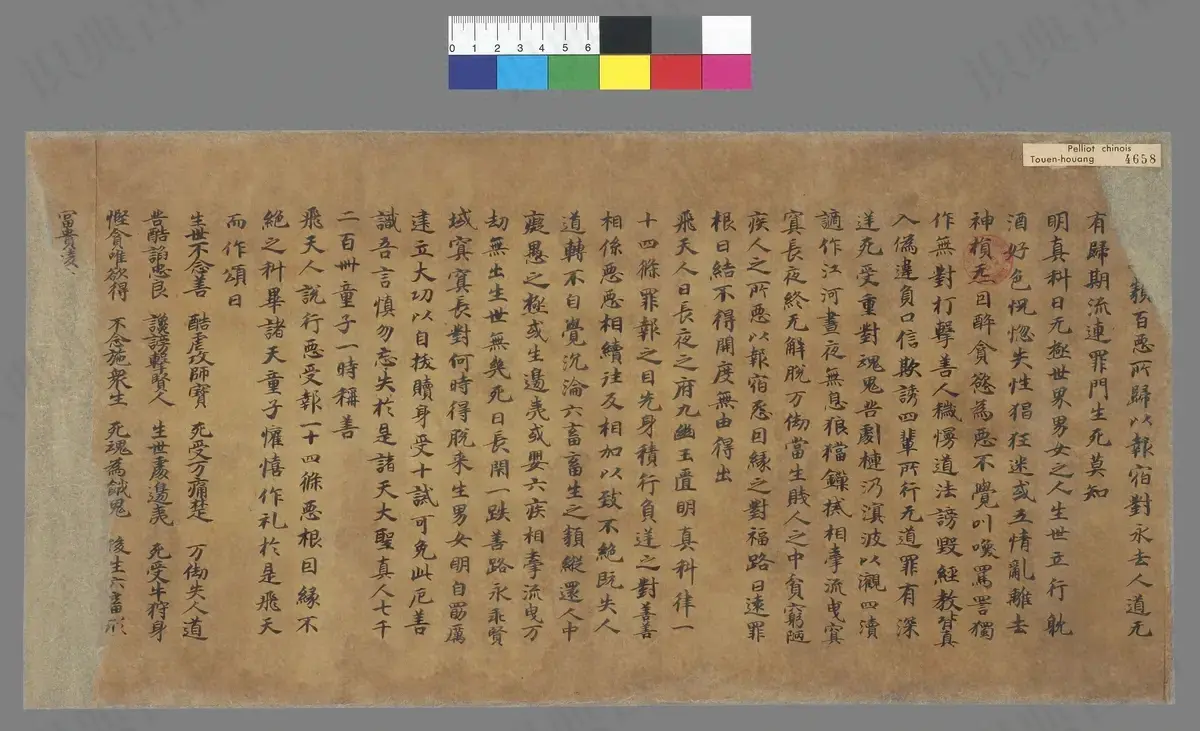 Pelliot chinois
Touen-houang 4658
0 1 2 3 4 5 6
類百惡所歸以報宿對永去人道无
有歸期流連罪門生死莫知
明真科曰无極世界男女之人生世立行躭
酒好色怳惚失性猖狂迷或五情亂離去
神損炁因醉貪慾為惡不覺叫喚罵詈獨
作無對打擊善人穢慢道法謗毀經教背真
入偽違負口信欺誘四輩所行无道罪有深
逆死受重對魂鬼苦劇槤汅溟波以灌四瀆
適作江河晝夜無息狼檔鏁械相牽流曳冥
冥長夜終无解脫万劫當生賎人之中貧窮陋
疾人之所惡以報宿恶因緣之對福路日遠罪
根日結不得開度無由得出
飛天人曰長夜之府九幽玉匱明真科律一
十四條罪報之目先身積行負逆之對善善
相係惡惡相續往反相加以致不絕既失人
道轉不自覺沉淪六畜畜生之類縱還人中
癡愚之極或生邊夷或嬰六疾相牽流曳万
劫無出生世無幾死日長閑一跌善路永乖賢
域冥冥長對何時得脫来生男女明自勗厲
速立大功以自拔贖身受十試可免此厄善
識吾言慎勿忘失於是諸天大聖真人七千
二百卌童子一時稱善
飛天人說行惡受報一十四條惡根因緣不
絕之科畢諸天童子懽憘作礼於是飛天
而作頌曰
生世不念善 酷虐攻師寳 死受万痛楚 万劫失人道
苦酷諂忠良 讒謗擊賢人 生世處邊夷 死受牛狩身
慳貪唯欲得 不念施衆生 死魂為餓鬼 後生六畜形
富貴